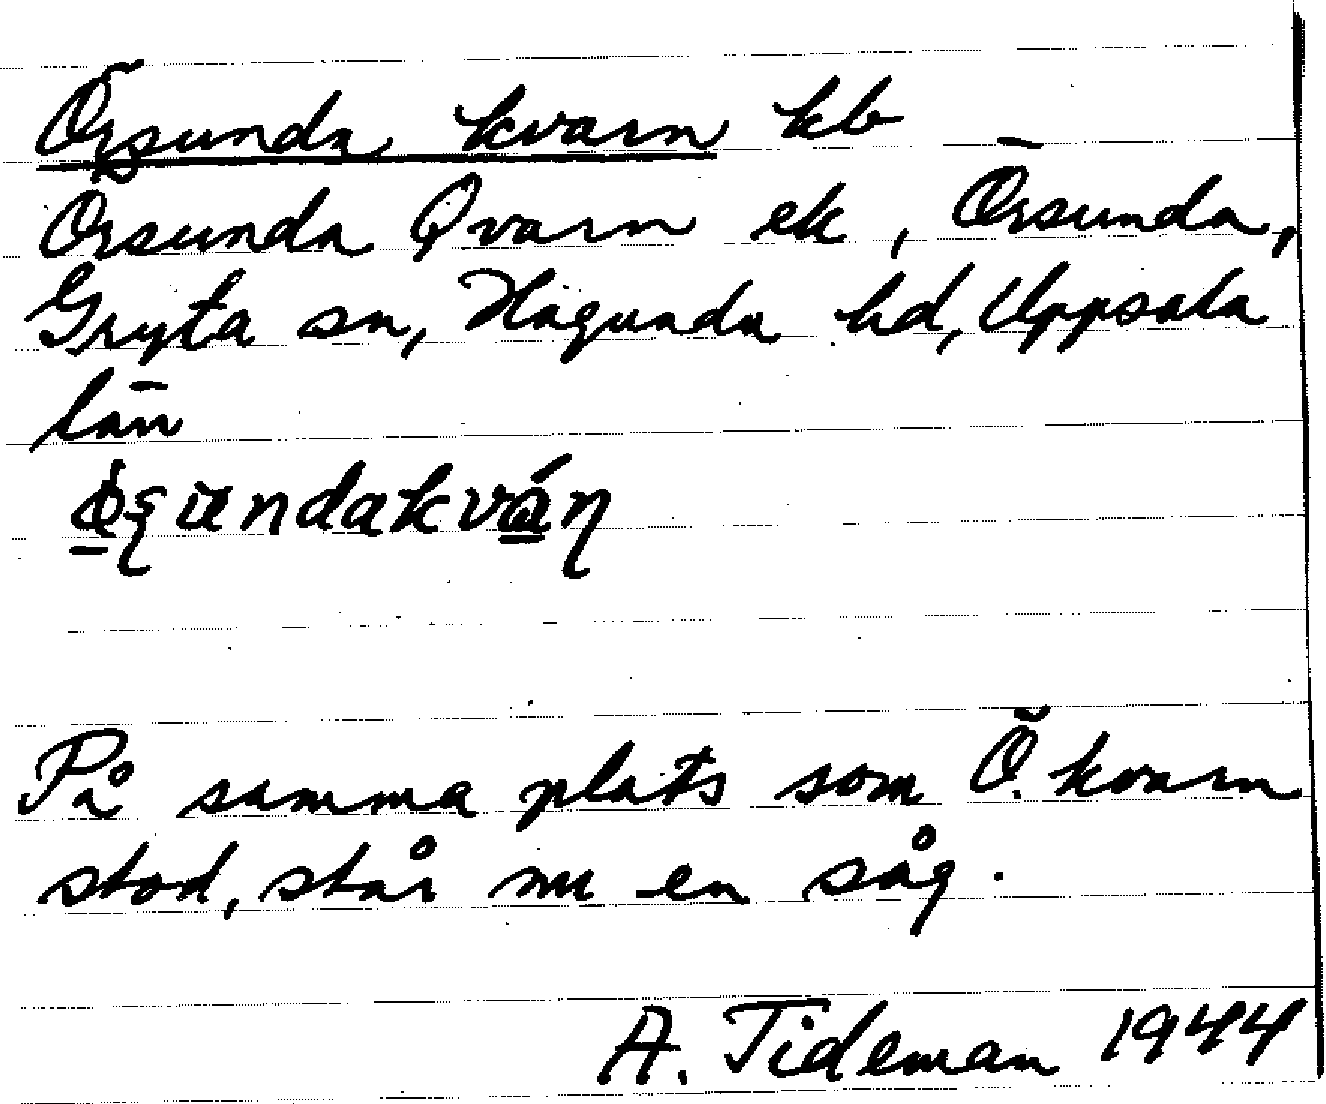 Örsunda kvarn kb
Örsunda Qvarn ek, Örsunda,
Gryta sn, Hagunda hd, Uppsala
län
På samma plats som Ö. kvarn
stod, står nu en såg.
A. Tideman 1944